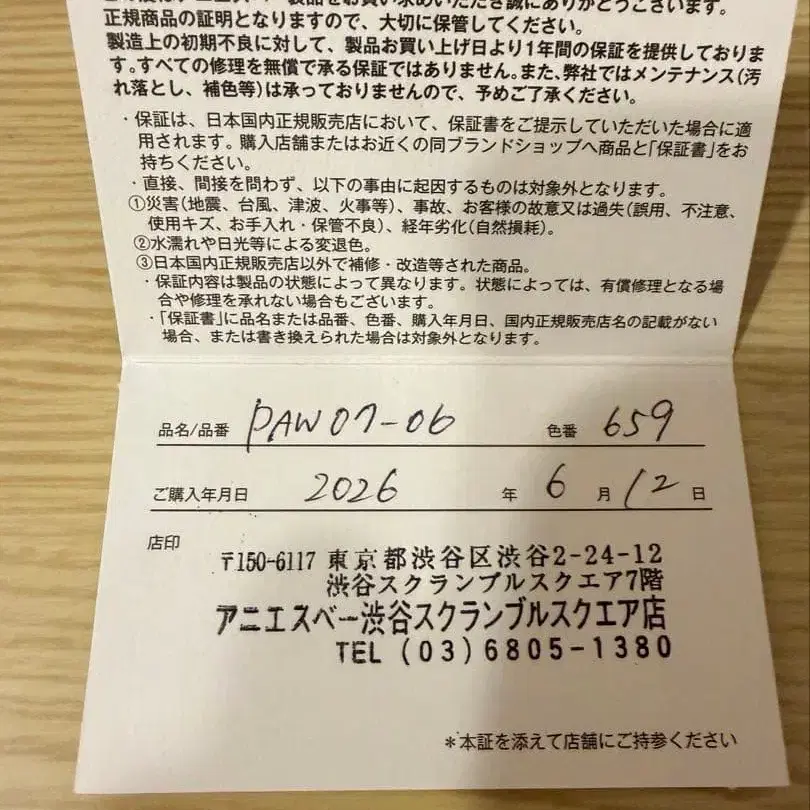 正規商品の証明となりますので、大切に保管してください。
製造上の初期不良に対して、製品お買い上げ日より1年間の保証を提供しておりま
す。すべての修理を無償で承る保証ではありません。また、弊社ではメンテナンス(汚
れ落とし、補色等)は承っておりませんので、予めご了承ください。
・保証は、日本国内正規販売店において、保証書をご提示していただいた場合に適
用されます。購入店舗またはお近くの同ブランドショップへ商品と「保証書」をお
持ちください。
・直接、間接を問わず、以下の事由に起因するものは対象外となります。
①災害(地震、台風、津波、火事等)、事故、お客様の故意又は過失(誤用、不注意、
使用キズ、お手入れ・保管不良)、経年劣化(自然損耗)。
②水濡れや日光等による変退色。
③日本国内正規販売店以外で補修・改造等された商品。
・保証内容は製品の状態によって異なります。状態によっては、有償修理となる場
合や修理を承れない場合もございます。
・「保証書」に品名または品番、色番、購入年月日、国内正規販売店名の記載がない
場合、または書き換えられた場合は対象外となります。
品名/品番 PAW07-06 色番 659
ご購入年月日 2026 年 6 月 12 日
店印
〒150-6117 東京都渋谷区渋谷2-24-12
渋谷スクランブルスクエア7階
アニエスベー渋谷スクランブルスクエア店
TEL (03)6805-1380
*本証を添えて店舗にご持参ください